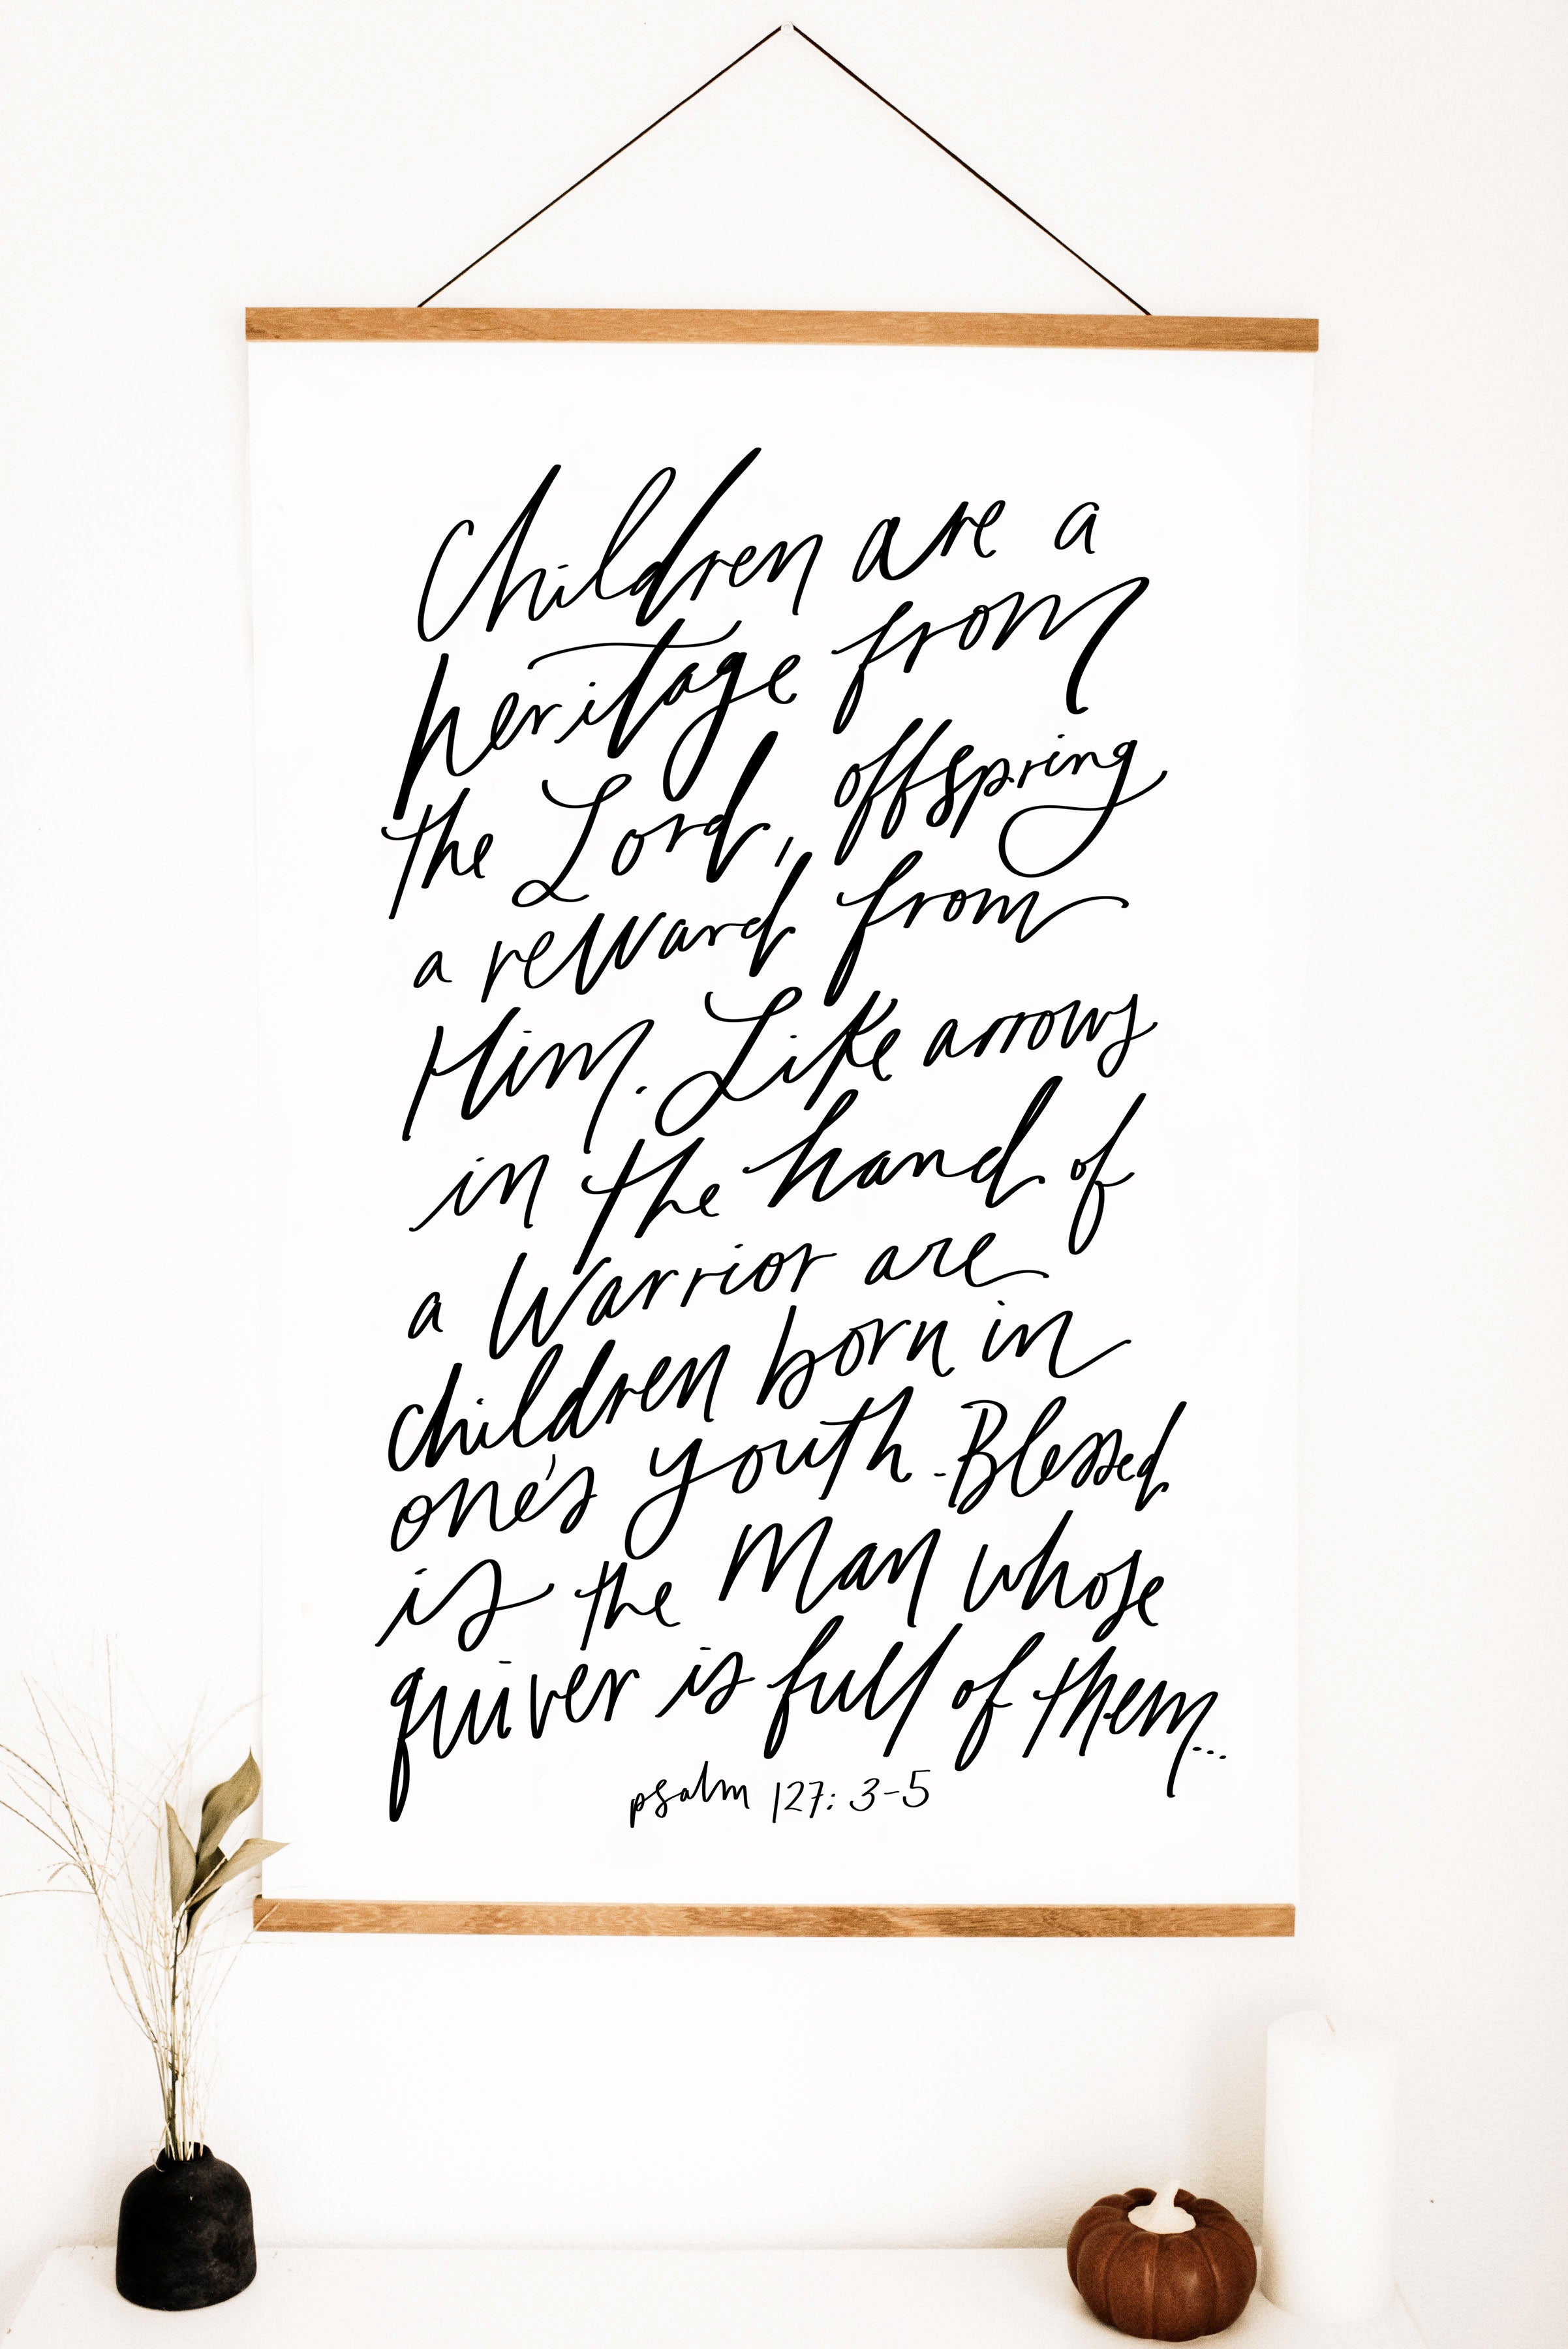 Children are a
heritage from
the Lord, offspring
a reward from
Him. Like arrows
in the hand of
a Warrior are
children born in
one's youth. Blessed
is the Man whose
quiver is full of them...
psalm 127: 3-5